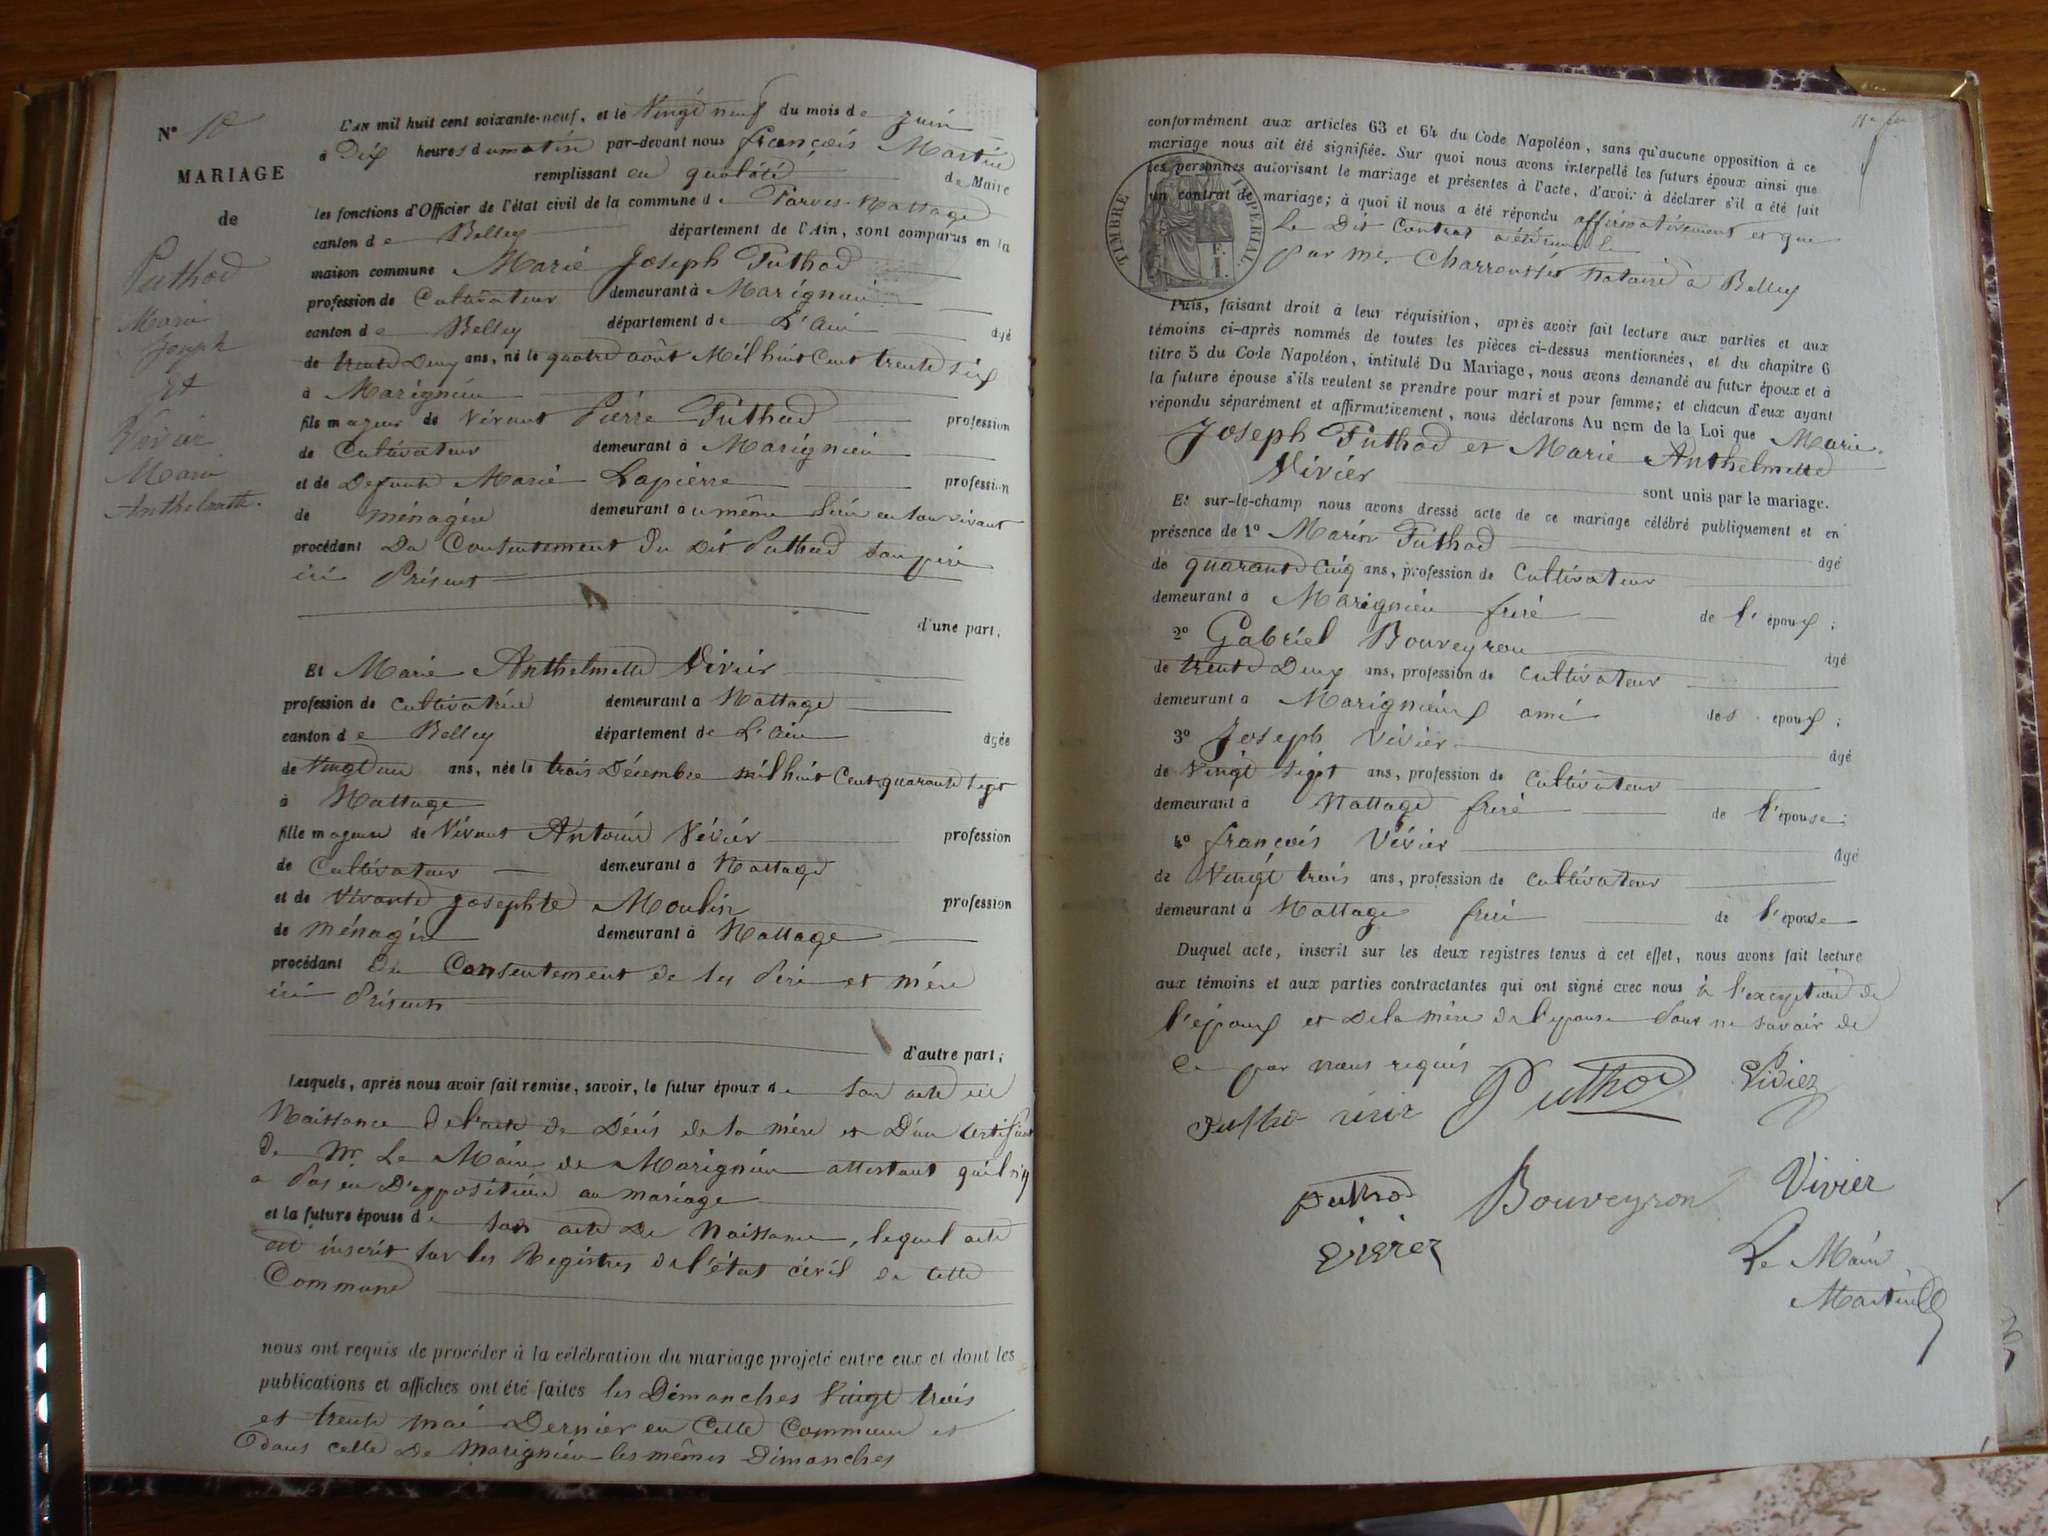 N° 10
MARIAGE
de
Puthod
Marie
Joseph
Et
Vivier
Marie
Anthelmette.
L'AN mil huit cent soixante-neuf, et le Vingt neuf du mois de juin
à Dix heures du matin par-devant nous françois Martin
remplissant en qualité de Maire
les fonctions d'Officier de l'état civil de la commune de Parves-Nattage
canton de Belley département de l'Ain, sont comparus en la
maison commune Marie Joseph Puthod
profession de Cultivateur demeurant à Marignieu
canton de Belley département de L'Ain âgé
de trente Deux ans, né le quatre août Mil huit Cent trente six
à Marignieu
fils majeur de Vivant Pierre Puthod profession
de Cultivateur demeurant à Marignieu
et de Defunte Marie Lapierre profession
de ménagère demeurant au même Lieu en son vivant
procédant Du Consentement Du Dit Puthod son père
ici Présent
d'une part;
Et Marie Anthelmette Vivier
profession de Cultivatrice demeurant à Nattage
canton de Belley département de L'Ain âgée
de Vingt un ans, née le trois Décembre mil huit Cent quarante sept
à Nattage
fille majeure de Vivant Antoine Vivier profession
de Cultivateur demeurant à Nattage
et de Vivante Josephte Moulin profession
de ménagère demeurant à Nattage
procédant Du Consentement de ses Père et mère
ici Présents
d'autre part;
Lesquels, après nous avoir fait remise, savoir, le futur époux de son acte de
Naissance De l'acte de Décès de la mère et D'un certificat
De Mr. Le Maire de Marignieu attestant qu'il n'y
a Pas eu D'opposition au mariage
et la future épouse de son acte De Naissance, lequel acte
est inscrit sur les Registres de l'état civil de cette
Commune
nous ont requis de procéder à la célébration du mariage projeté entre eux et dont les
publications et affiches ont été faites les Dimanches Vingt trois
et trente mai Dernier en Cette Commune et
Dans celle De Marignieu les mêmes Dimanches
conformément aux articles 63 et 64 du Code Napoléon, sans qu'aucune opposition à ce
mariage nous ait été signifiée. Sur quoi nous avons interpellé les futurs époux ainsi que
les personnes autorisant le mariage et présentes à l'acte, d'avoir à déclarer s'il a été fait
un contrat de mariage; à quoi il nous a été répondu affirmativement et que
Le Dit Contrat a été reçu
par me. Charrousset Notaire à Belley
TIMBRE IMPERIAL
Puis, faisant droit à leur réquisition, après avoir fait lecture aux parties et aux
témoins ci-après nommés de toutes les pièces ci-dessus mentionnées, et du chapitre 6
titre 5 du Code Napoléon, intitulé Du Mariage, nous avons demandé au futur époux et à
la future épouse s'ils veulent se prendre pour mari et pour femme; et chacun d'eux ayant
répondu séparément et affirmativement, nous déclarons Au nom de la Loi que Marie
Joseph Puthod et Marie Anthelmette
Vivier sont unis par le mariage.
Et sur-le-champ nous avons dressé acte de ce mariage célébré publiquement et en
présence de 1° Marin Puthod âgé
de quarante Cinq ans, profession de Cultivateur
demeurant à Marignieu frère de l'époux;
2° Gabriel Bouveyron âgé
de trente Deux ans, profession de Cultivateur
demeurant à Marignieux ami des époux;
3° Joseph Vivier âgé
de Vingt Sept ans, profession de Cultivateur
demeurant à Nattage frère de l'épouse;
4° françois Vivier âgé
de Vingt trois ans, profession de Cultivateur
demeurant à Nattage frère de l'épouse
Duquel acte, inscrit sur les deux registres tenus à cet effet, nous avons fait lecture
aux témoins et aux parties contractantes qui ont signé avec nous à l'exception de
l'époux et De la mère de l'épouse pour ne savoir de
Ce par nous requis
Puthod Vividz
Puthod Bouveyron Vivier
Le Maire
Martin